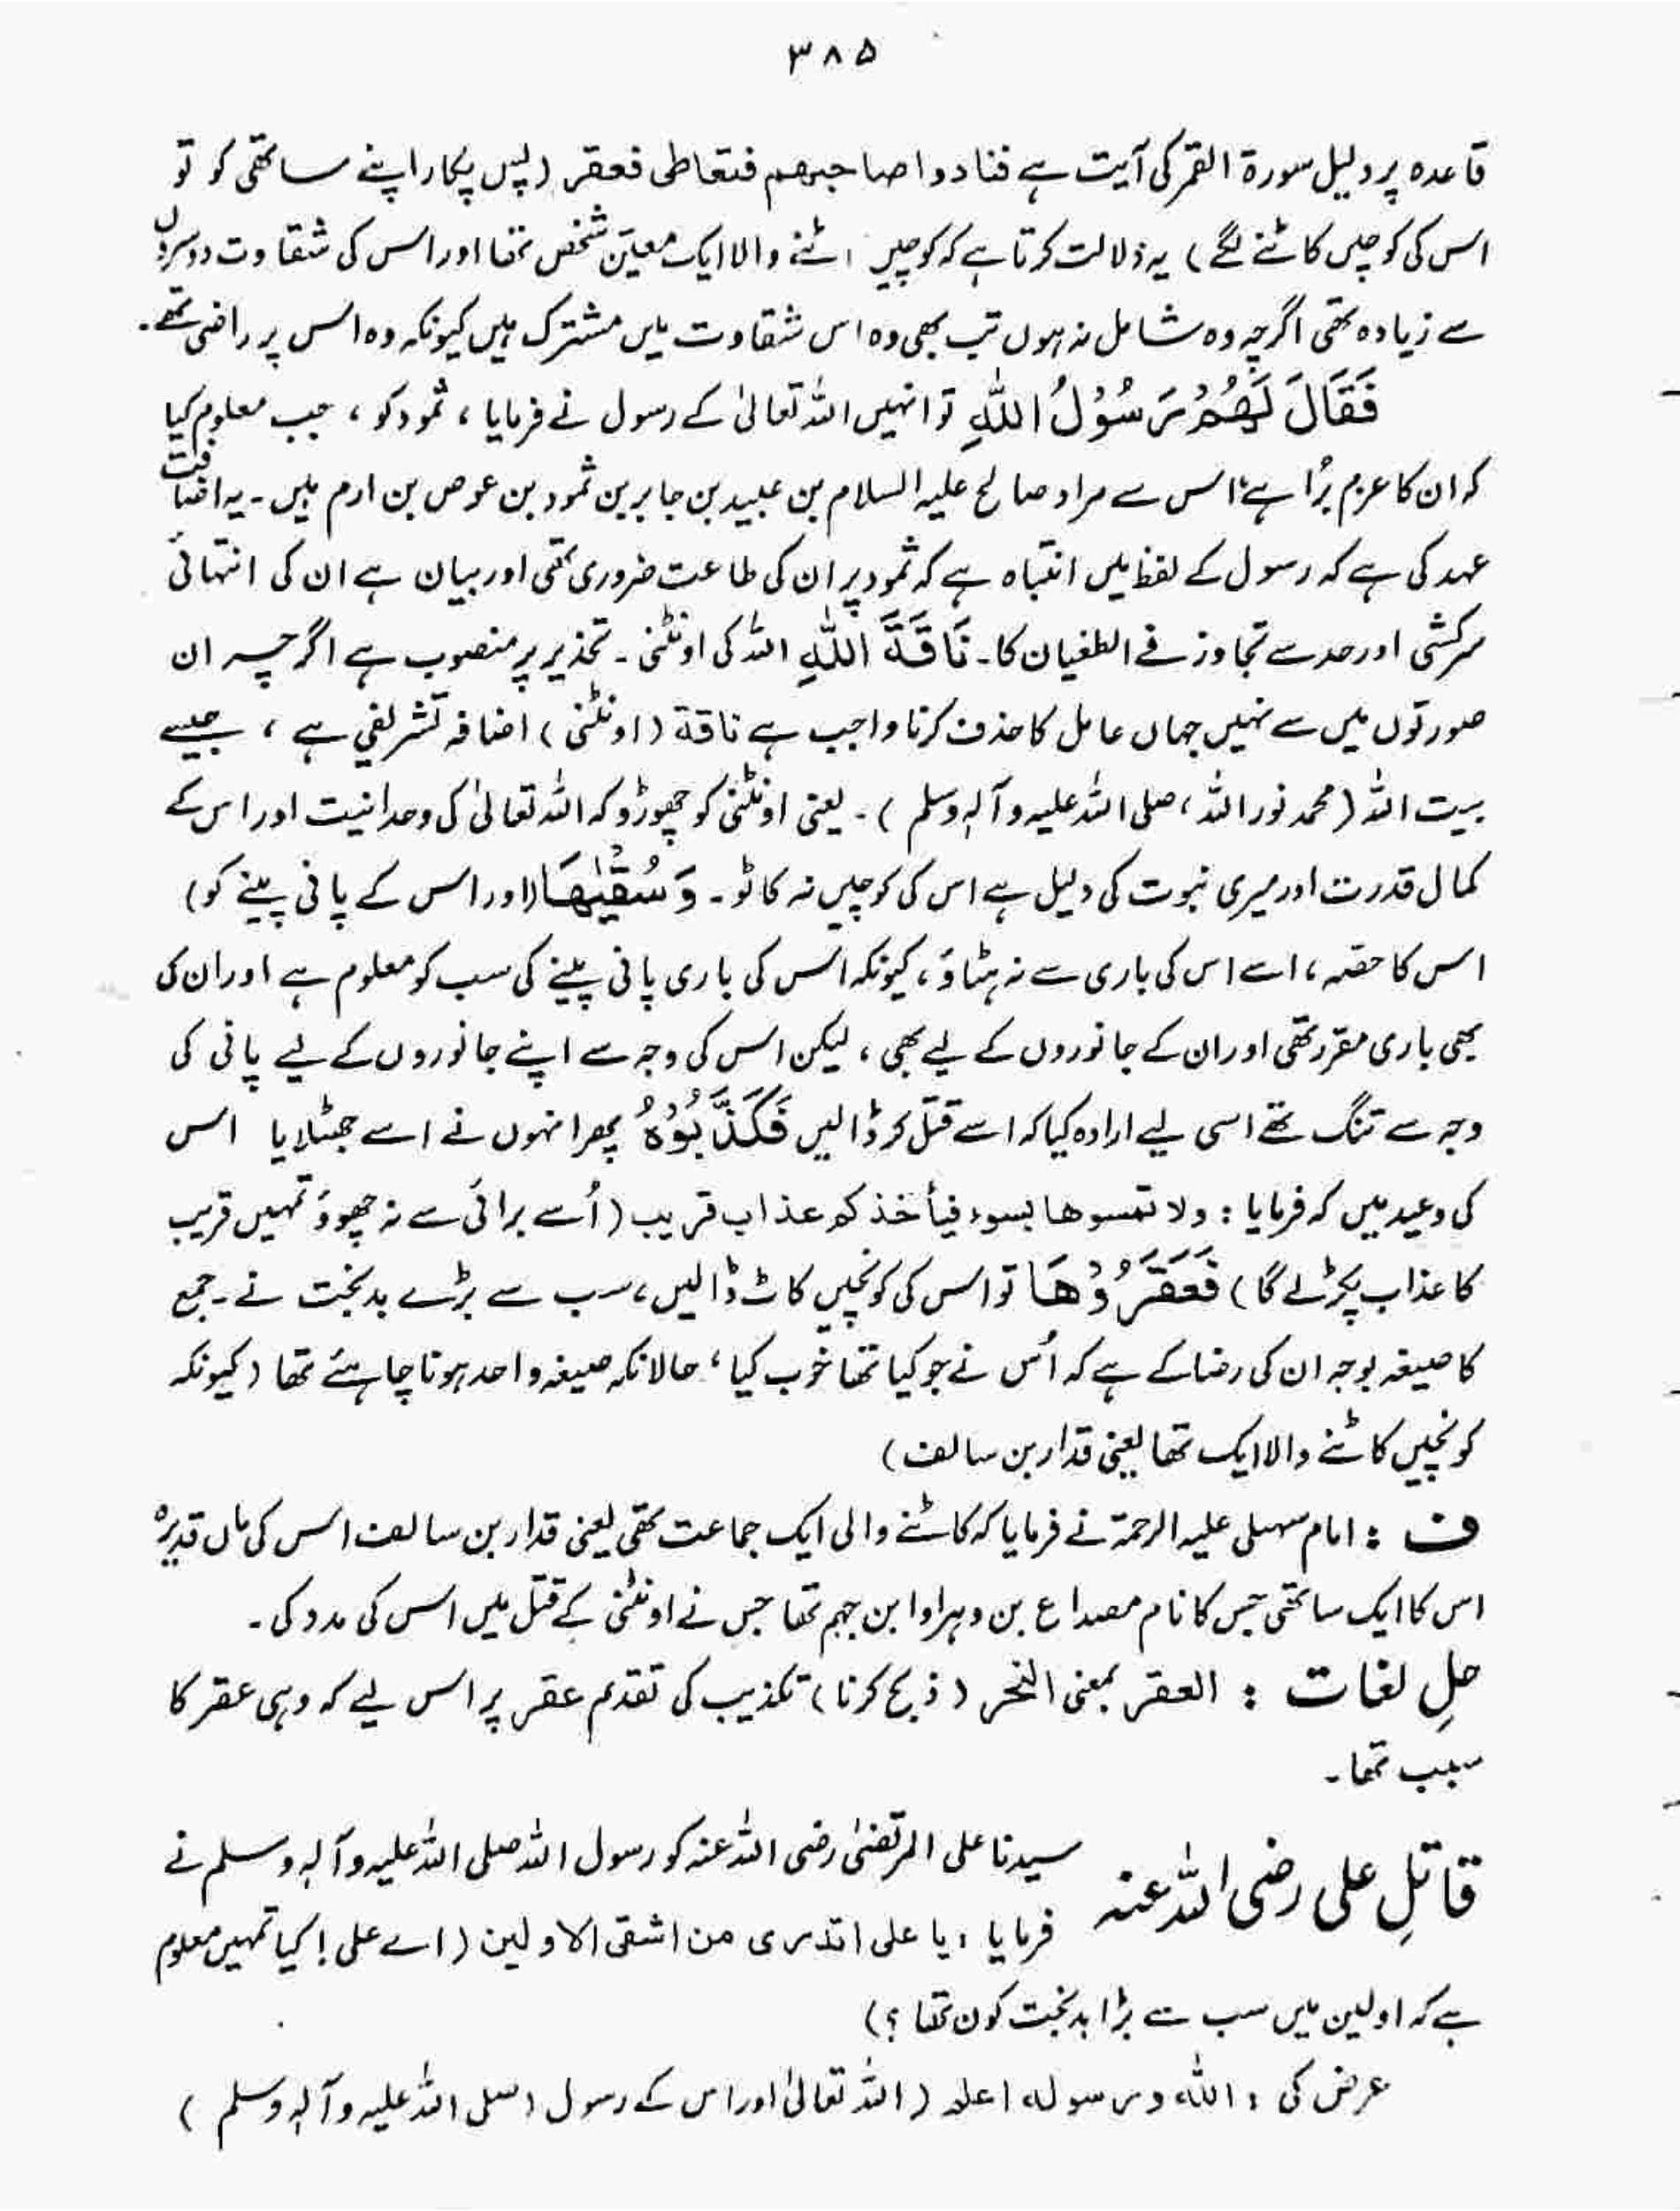 ۳۸۵
قاعدہ پر دلیل سورۃ القمر کی آیت ہے فنادوا صاحبهم فتعاطى فعقر (پس پکارا اپنے ساتھی کو تو
اس کی کوچیں کاٹنے لگے) یہ دلالت کرتا ہے کہ کوچیں اٹنے والا ایک معین شخص تھا اور اس کی شقاوت دوسروں
سے زیادہ تھی اگرچہ وہ شامل نہ ہوں تب بھی وہ اس شقاوت میں مشترک ہیں کیونکہ وہ اس پر راضی تھے۔
فَقَالَ لَهُمْ رَسُوْلُ اللّٰهِ تو انہیں اللہ تعالیٰ کے رسول نے فرمایا ، ثمود کو ، جب معلوم کیا
کہ ان کا عزم بُرا ہے، اس سے مراد صالح علیہ السلام بن عبید بن جابر بن ثمود بن عوص بن ارم ہیں ۔ یہ اضافت
عہد کی ہے کہ رسول کے لفظ میں انتباہ ہے کہ ثمود پر ان کی طاعت ضروری تھی اور بیان ہے ان کی انتہائی
سرکشی اور حد سے تجاوز فے الطغیان کا۔ نَاقَةَ اللّٰهِ اللہ کی اونٹنی ۔ تحذیر پر منصوب ہے اگرچہ ان
صورتوں میں سے نہیں جہاں عامل کا حذف کرنا واجب ہے ناقة (اونٹنی) اضافہ تشریفی ہے ، جیسے
بیت اللہ (محمد نور اللہ ، صلی اللہ علیہ وآلہٖ وسلم ) ۔ یعنی اونٹنی کو چھوڑو کہ اللہ تعالیٰ کی وحدانیت اور اس کے
کمال قدرت اور میری نبوت کی دلیل ہے اس کی کوچیں نہ کاٹو ۔ وَسُقْيٰهَا (اور اس کے پانی پینے کو)
اس کا حصہ ، اسے اس کی باری سے نہ ہٹاؤ ، کیونکہ اس کی باری پانی پینے کی سب کو معلوم ہے اور ان کی
بھی باری مقرر تھی اور ان کے جانوروں کے لیے بھی ، لیکن اس کی وجہ سے اپنے جانوروں کے لیے پانی کی
وجہ سے تنگ تھے اسی لیے ارادہ کیا کہ اسے قتل کر ڈالیں فَكَذَّبُوْهُ پھر انہوں نے اسے جھٹلایا اس
کی وعید میں کہ فرمایا : ولا تمسوها بسوء فيأخذكم عذاب قريب (اُسے برائی سے نہ چھوؤ تمہیں قریب
کا عذاب پکڑلے گا) فَعَقَرُوْهَا تو اس کی کونچیں کاٹ ڈالیں ، سب سے بڑے بدبخت نے ۔ جمع
کا صیغہ بوجہ ان کی رضا کے ہے کہ اُس نے جو کیا تھا خوب کیا ، حالانکہ صیغہ واحد ہونا چاہئے تھا (کیونکہ
کونچیں کاٹنے والا ایک تھا یعنی قدار بن سالف)
ف : امام سہیلی علیہ الرحمۃ نے فرمایا کہ کاٹنے والی ایک جماعت تھی یعنی قدار بن سالف اس کی ماں قدیرہ
اس کا ایک ساتھی جس کا نام مصداع بن وہر اوا بن جہم تھا جس نے اونٹنی کے قتل میں اس کی مدد کی ۔
حلِ لغات : العقر بمعنی النحر (ذبح کرنا) تکذیب کی تقدیم عقر پر اس لیے کہ وہی عقر کا
سبب تھا ۔
قاتلِ علی رضی اللہ عنہ سیدنا علی المرتضیٰ رضی اللہ عنہ کو رسول اللہ صلی اللہ علیہ وآلہٖ وسلم نے
فرمایا : یا علی اتدری من اشقی الاولین (اے علی! کیا تمہیں معلوم
ہے کہ اولین میں سب سے بڑا بدبخت کون تھا ؟)
عرض کی : اللہ ورسولہ اعلم (اللہ تعالیٰ اور اس کے رسول (صلی اللہ علیہ وآلہٖ وسلم )